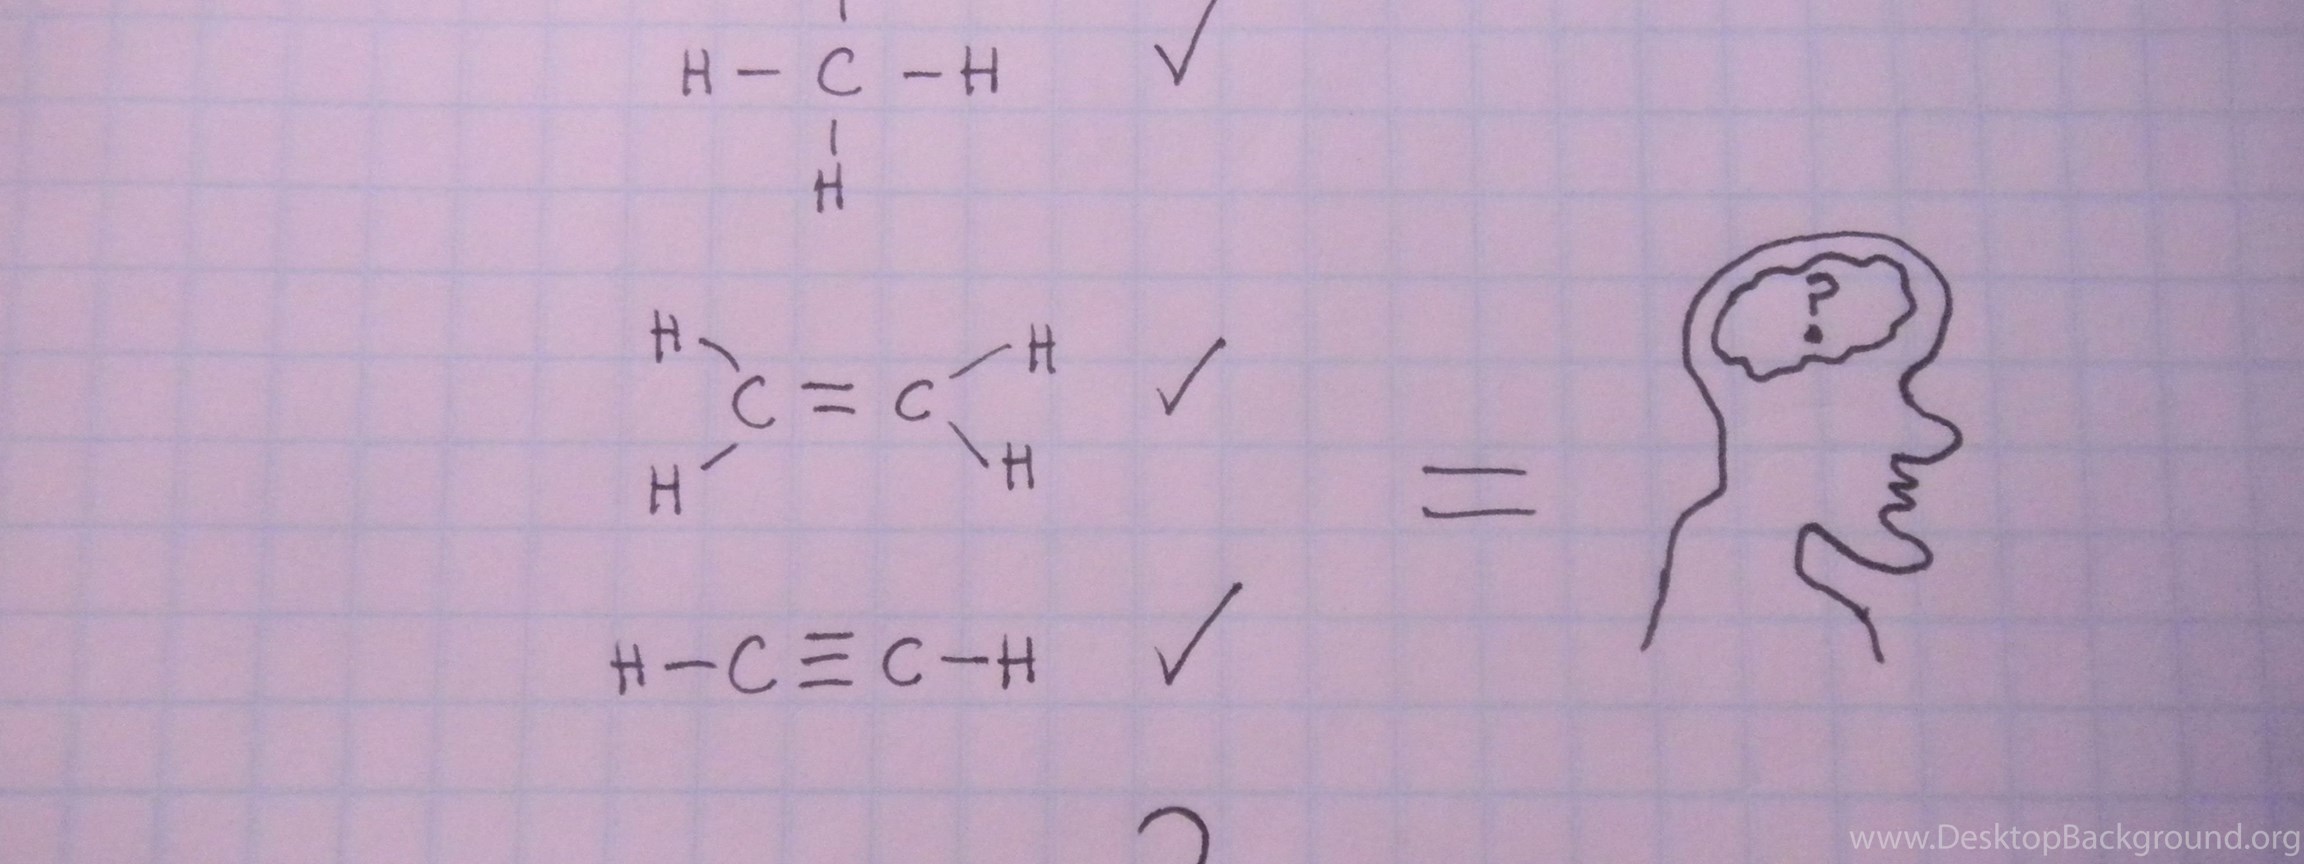 H – C – H ✓
|
H
H H
C = C ✓
H H
=
?
H – C ≡ C – H ✓
www.DesktopBackground.org